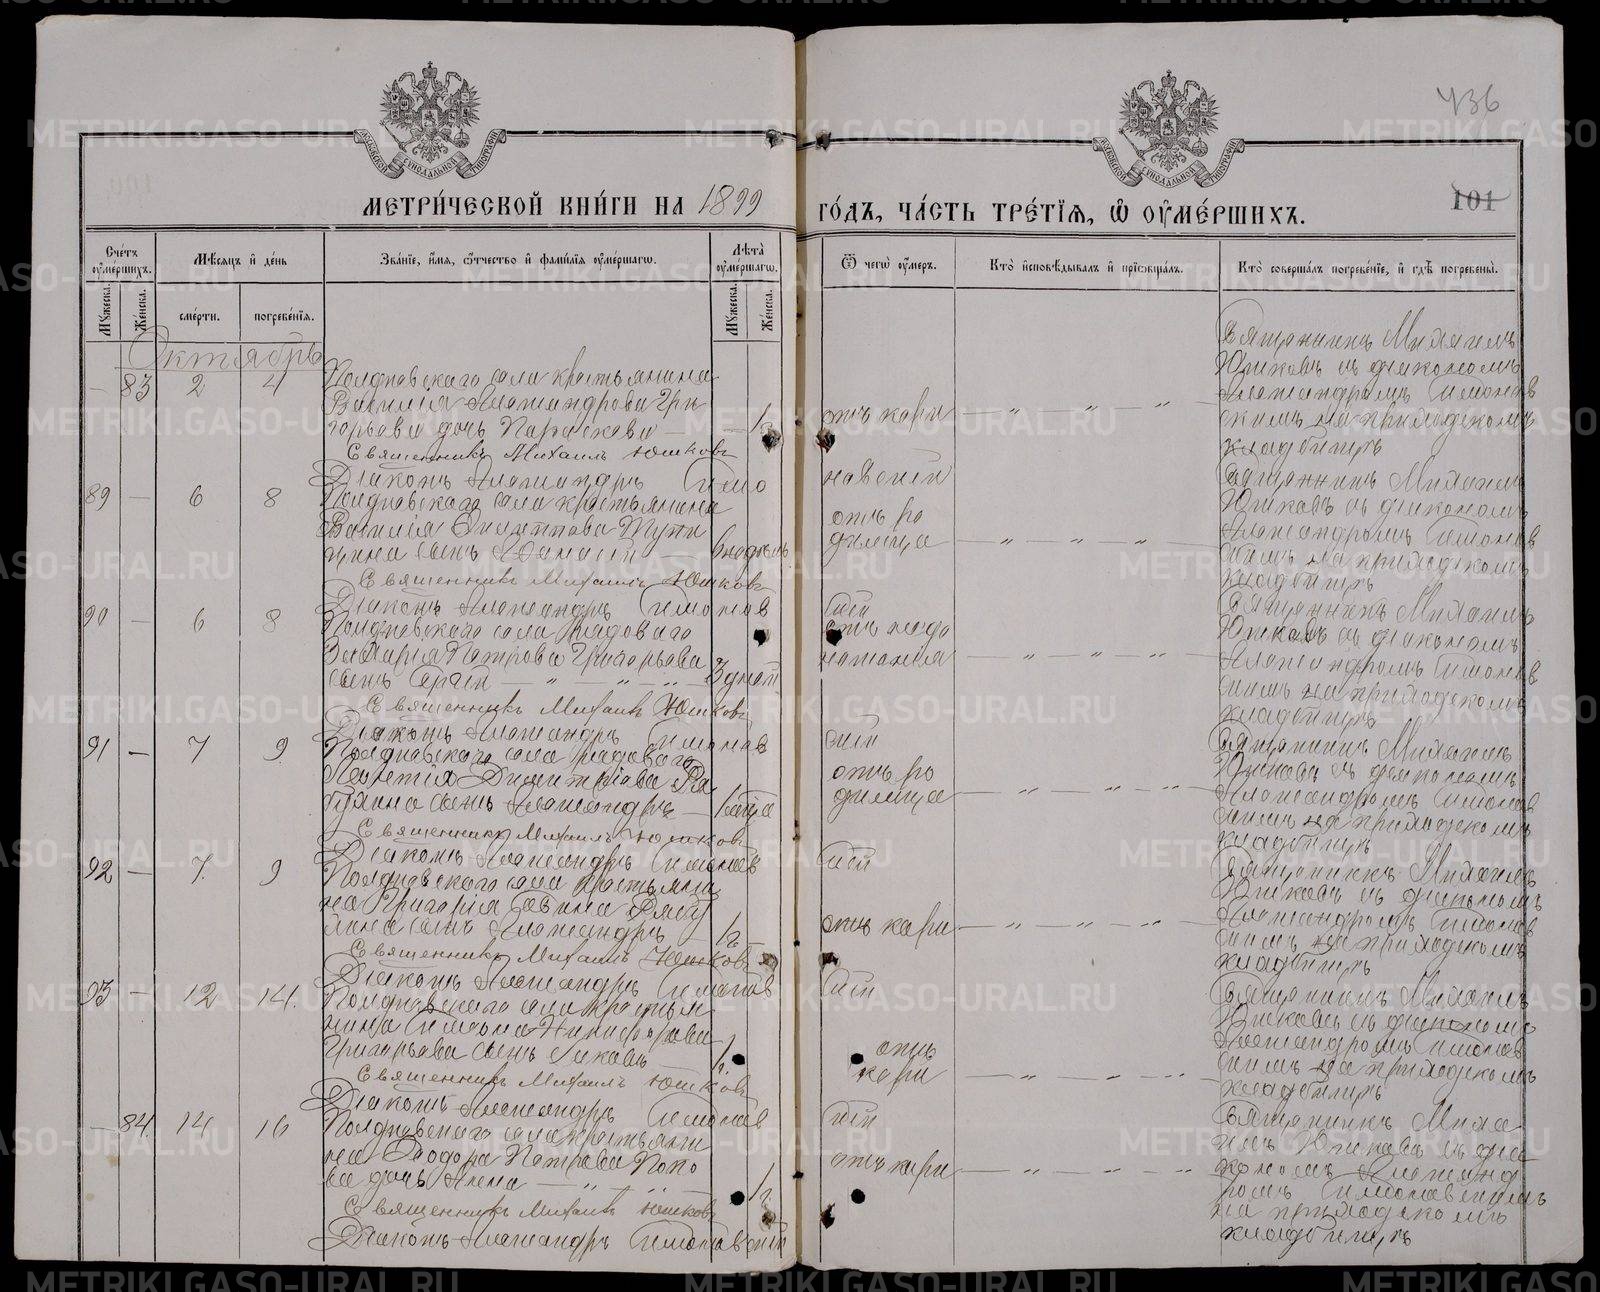 436
101
МЕТРИ́ЧЕСКОЙ КНИ́ГИ НА 1899 ГО́ДЪ, ЧА́СТЬ ТРЕ́ТІѦ, Ѡ҆ ОУ҆МЕ́РШИХЪ.
Сче́тъ оу҆ме́ршихъ.
Мꙋжеска.
Же́нска.
Мѣ́сѧцъ и҆ де́нь
сме́рти.
погребе́нїѧ.
Зва́нїе, и҆́мѧ, ѻ҆́тчество и҆ фами́лїѧ оу҆ме́ршагѡ.
Лѣ́та оу҆ме́ршагѡ.
Мꙋжеска.
Же́нска.
Ѿ чегѡ̀ оу҆́меръ.
Кто̀ и҆сповѣ́дывалъ и҆ прїѡбща́лъ.
Кто̀ соверша́лъ погребе́нїе, и҆ гдѣ̀ погребены̀.
Октябрь
— 83 2 4
Полдневскаго села крестьянина
Василія Александрова Гри
горьева дочь Параскева — 1 г.
отъ кори — „ — „ — „ —
Священникъ Михаилъ
Юшковъ съ діакономъ
Александромъ Симонов
скимъ на приходскомъ
кладбищѣ
Священникъ Михаилъ Юшковъ
Діаконъ Александръ Симо
новскій
89 — 6 8
Полдневскаго села крестьянина
Василія
сынъ — недѣль
отъ ро
димца — „ — „ — „ —
Священникъ Михаилъ
Юшковъ съ діакономъ
Александромъ Симонов
скимъ на приходскомъ
кладбищѣ
Священникъ Михаилъ Юшковъ
Діаконъ Александръ Симонов
скій
90 — 6 8
Полдневскаго села рядоваго
Захарія Петрова Григорьева
сынъ Сергій — „ — „ — „ — 3 дней
отъ недо
ношенія — „ — „ — „ —
Священникъ Михаилъ
Юшковъ съ діакономъ
Александромъ Симонов
скимъ на приходскомъ
кладбищѣ
Священникъ Михаилъ Юшковъ
Діаконъ Александръ Симонов
скій
91 — 7 9
Полдневскаго села рядоваго
Димитріева
сынъ Александръ —
отъ ро
димца — „ — „ — „ —
Священникъ Михаилъ
Юшковъ съ діакономъ
Александромъ Симонов
скимъ на приходскомъ
кладбищѣ
Священникъ Михаилъ Юшковъ
Діаконъ Александръ Симонов
скій
92 — 7. 9
Полдневскаго села крестьяни
на Григорія Савина
сынъ Александръ — 1 г.
отъ кори — „ — „ — „ —
Священникъ Михаилъ
Юшковъ съ діакономъ
Александромъ Симонов
скимъ на приходскомъ
кладбищѣ
Священникъ Михаилъ Юшковъ
Діаконъ Александръ Симонов
скій
93 — 12 14.
Полдневскаго села крестья
нина Симеона Никифорова
Григорьева сынъ Іаковъ — 1 г.
отъ
кори — „ — „ — „ —
Священникъ Михаилъ
Юшковъ съ діакономъ
Александромъ Симонов
скимъ на приходскомъ
кладбищѣ
Священникъ Михаилъ Юшковъ
Діаконъ Александръ Симонов
скій
— 84. 14 16
Полдневскаго села крестьяни
на Ѳеодора Петрова Попо
ва дочь — „ — „ — 1 г.
отъ кори — „ — „ — „ —
Священникъ Миха
илъ Юшковъ съ діа
кономъ Александ
ромъ Симоновскимъ
на приходскомъ
кладбищѣ
Священникъ Михаилъ Юшковъ
Діаконъ Александръ Симоновскій
METRIKI.GASO-URAL.RU